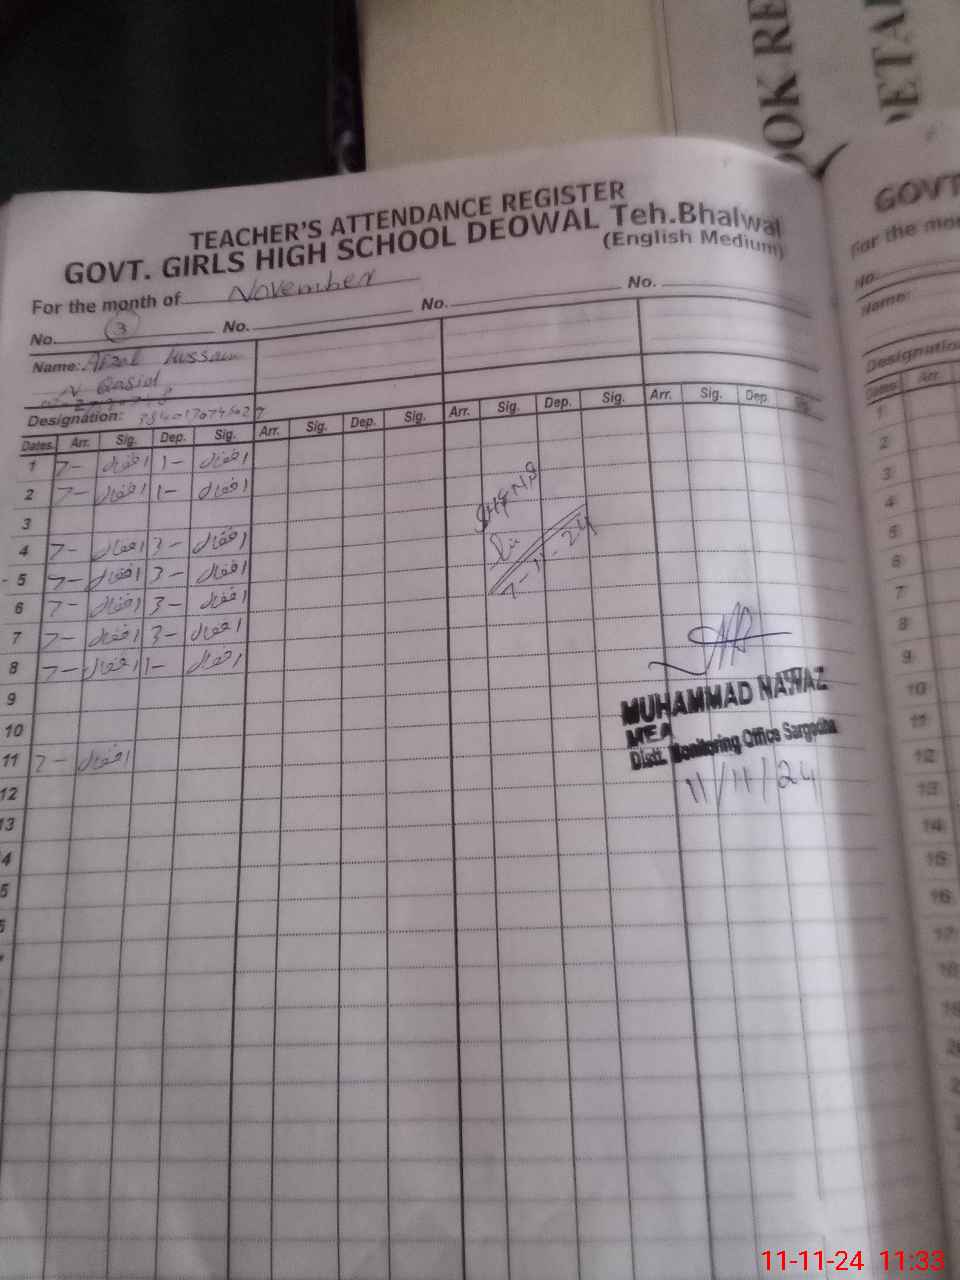 OOK RE
DETAI
TEACHER'S ATTENDANCE REGISTER
GOVT. GIRLS HIGH SCHOOL DEOWAL Teh.Bhalwal
(English Medium)
For the month of November
No. 3 No. No. No.
Name: Afzal Hussain
N Qasid
Designation:
Dates. Arr. Sig. Dep. Sig. Arr. Sig. Dep. Sig. Arr. Sig. Dep. Sig. Arr. Sig. Dep. Sig.
1 7- افضال 1- افضال
2 7- افضال 1- افضال
3
4 7- افضال 3- افضال
5 7- افضال 3- افضال
6 7- افضال 3- افضال
7 7- افضال 3- افضال
8 7- افضال 1- افضال
9
10
11 7- افضال
12
13
4
5
7-11-24
MUHAMMAD NAWAZ
MEA
Distt. Monitoring Office Sargodha
11/11/24
GOVT
For the mon
No.
Name:
Designatio
Dates. Arr.
1
2
3
4
5
6
7
8
9
10
11
12
13
14
15
16
17
18
19
11-11-24 11:33